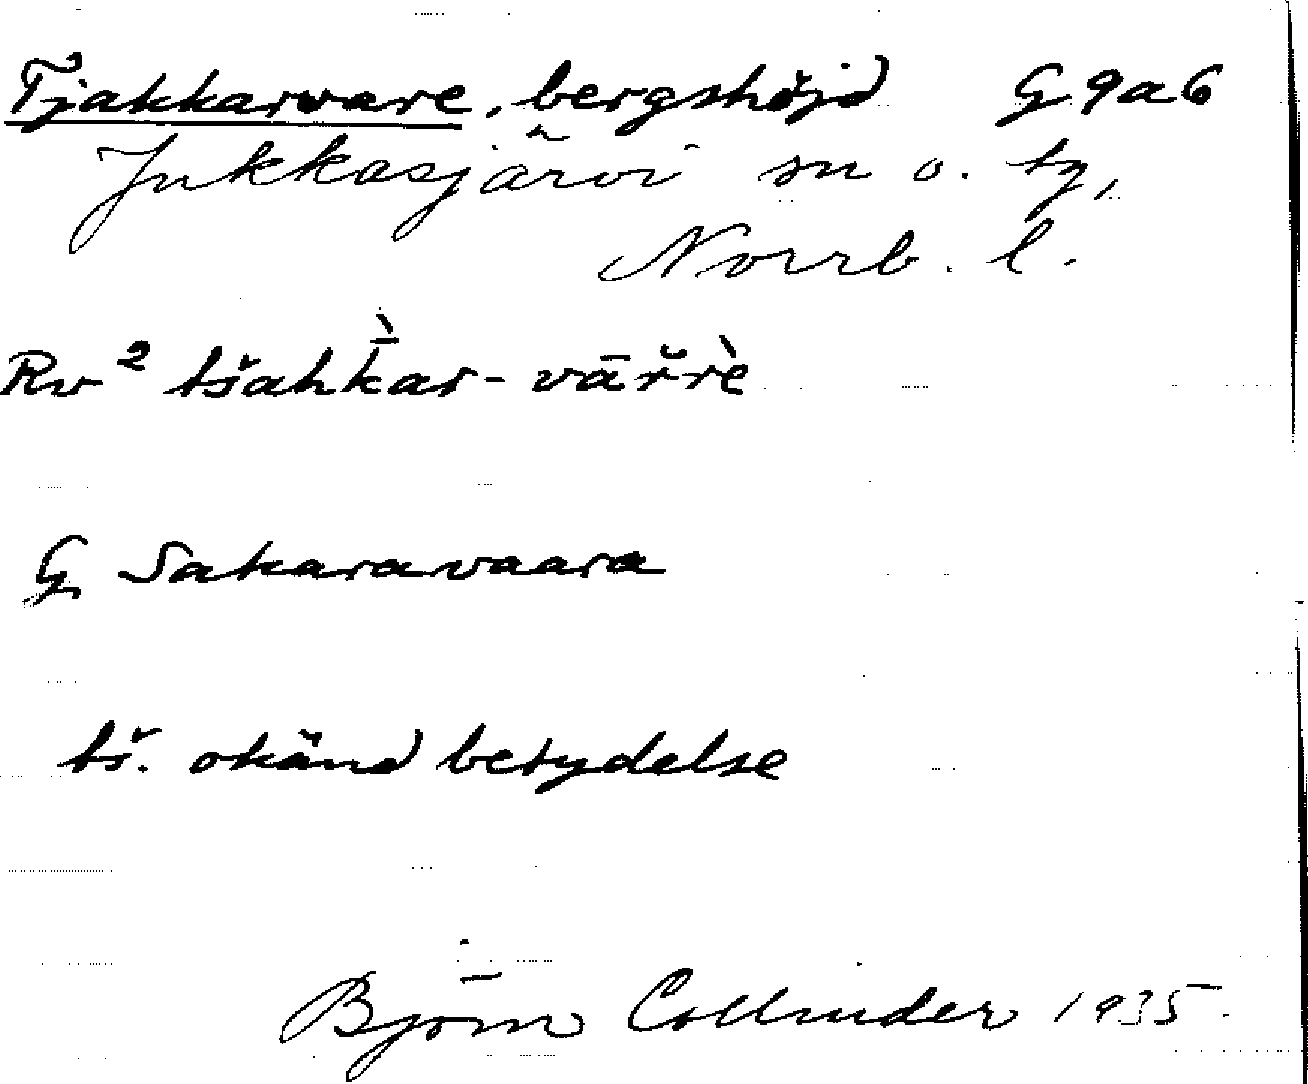 Tjakkarvare, bergshöjd G 9a6
Jukkasjärvi sn o. tg,
Norrb. l.
Rv² tšahk̀ar-vāřrè
G Sakaravaara
tš. okänd betydelse
Björn Collinder 1935.